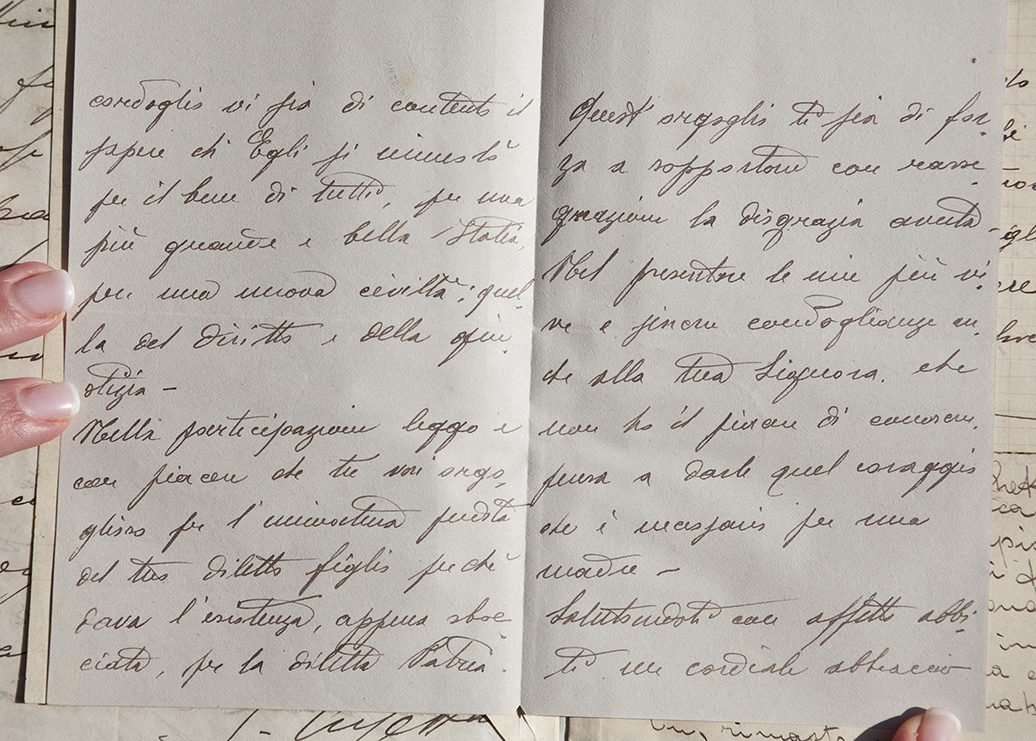 cordoglio vi sia di contento il
sapere ch'Egli si immolò
per il bene di tutti, per una
più grande e bella Italia,
per una nuova civiltà; quel-
la del diritto e della giu-
stizia —
Nella partecipazione leggo e
con piacere che tu vai orgo-
glioso per l'immatura perdita
del tuo diletto figlio perché
dava l'esistenza, appena sboc
ciata, per la diletta Patria.
Quest'orgoglio ti sia di for-
za a sopportare con rasse-
gnazione la disgrazia avuta —
Nel presentare le mie più vi-
ve e sincere condoglianze an-
che alla tua Signora, che
non ho il piacere di conoscere,
pensa a darle quel coraggio
che è necessario per una
madre —
Salutandoti con affetto abbi-
ti un cordiale abbraccio